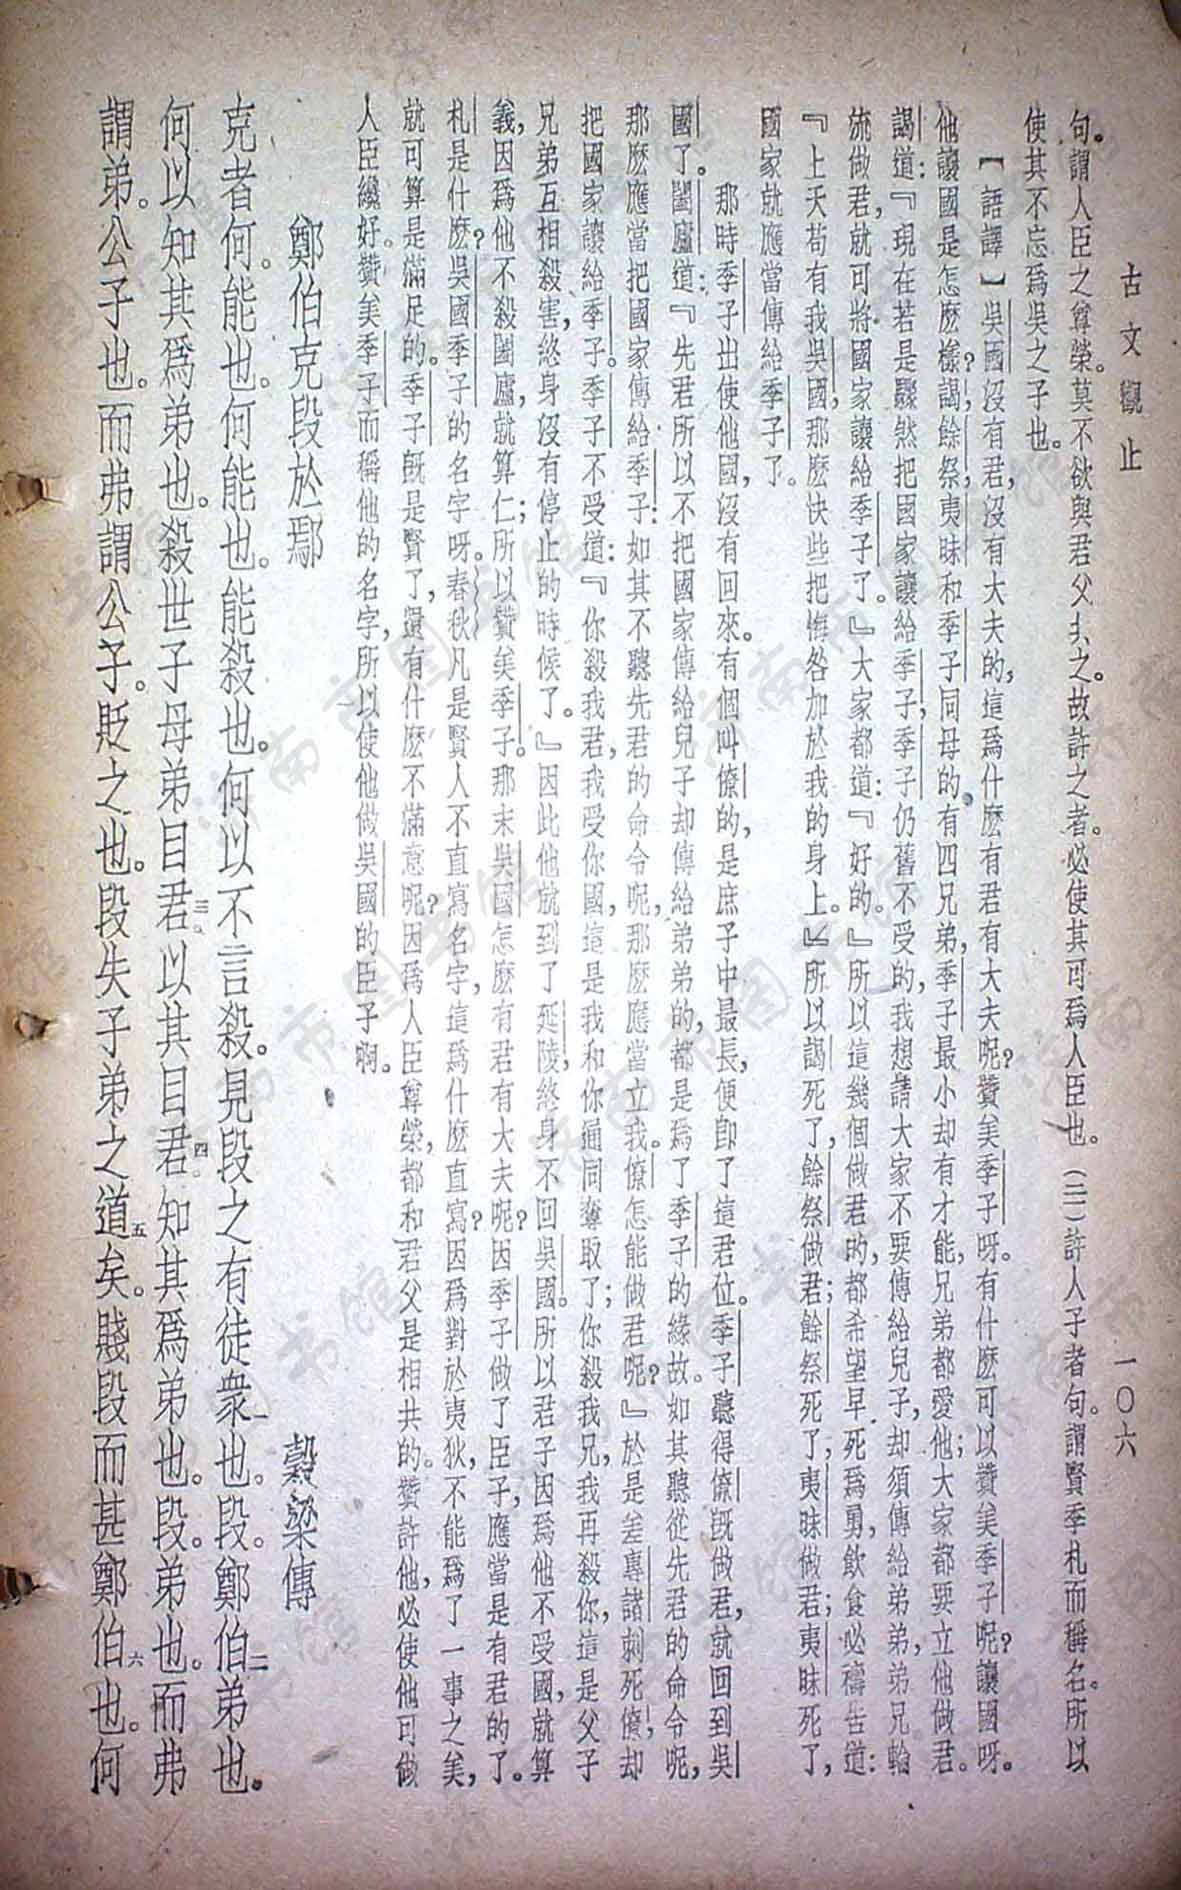 古文觀止
一〇六
句。謂人臣之尊榮。莫不欲與君父共之。故許之者。必使其可爲人臣也。（二一）許人子者句。謂賢季札而稱名。所以
使其不忘爲吳之子也。
【語譯】吳國沒有君，沒有大夫的，這爲什麽有君有大夫呢？贊美季子呀。有什麽可以贊美季子呢？讓國呀。
他讓國是怎麽樣？謁，餘祭，夷昧和季子同母的有四兄弟，季子最小却有才能，兄弟都愛他；大家都要立他做君。
謁道：『現在若是驟然把國家讓給季子，季子仍舊不受的，我想請大家不要傳給兒子，却須傳給弟弟，弟兄輪
流做君，就可將國家讓給季子了。』大家都道：『好的。』所以這幾個做君的，都希望早死爲勇，飲食必禱告道：
『上天苟有我吳國，那麽快些把悔咎加於我的身上。』所以謁死了，餘祭做君；餘祭死了，夷昧做君；夷昧死了，
國家就應當傳給季子了。
那時季子出使他國，沒有回來。有個叫僚的，是庶子中最長，便卽了這君位。季子聽得僚旣做君，就回到吳
國了。闔廬道：『先君所以不把國家傳給兒子却傳給弟弟的，都是爲了季子的緣故。如其聽從先君的命令呢，
那麽應當把國家傳給季子；如其不聽先君的命令呢，那麽應當立我。僚怎能做君呢？』於是差專諸刺死僚，却
把國家讓給季子。季子不受道：『你殺我君，我受你國，這是我和你通同奪取了；你殺我兄，我再殺你，這是父子
兄弟互相殺害，終身沒有停止的時候了。』因此他就到了延陵，終身不回吳國。所以君子因爲他不受國，就算
義，因爲他不殺闔廬，就算仁；所以贊美季子。那末吳國怎麽有君有大夫呢？因季子做了臣子，應當是有君的了。
札是什麽？吳國季子的名字呀。春秋凡是賢人不直寫名字，這爲什麽直寫？因爲對於夷狄，不能爲了一事之美，
就可算是滿足的。季子旣是賢了，還有什麽不滿意呢？因爲人臣尊榮，都和君父是相共的。贊許他，必使他可做
人臣纔好。贊美季子而稱他的名字，所以使他做吳國的臣子啊。
鄭伯克段於鄢
穀梁傳
克者何。能也。何能也。能殺也。何以不言殺。見段之有徒衆一也。段。鄭伯二弟也。
何以知其爲弟也。殺世子母弟目君三。以其目君四知其爲弟也。段。弟也。而弗
謂弟。公子也。而弗謂公子。貶之也。段失子弟之道五矣。賤段而甚鄭伯六也。何